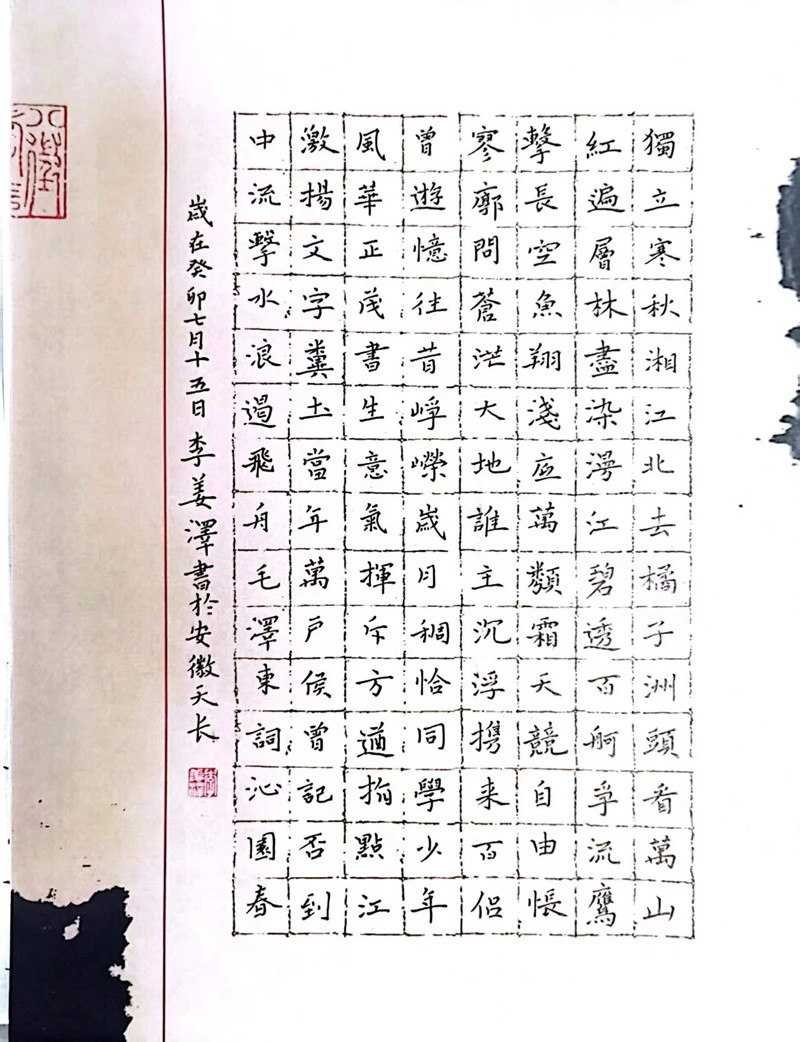 獨立寒秋湘江北去橘子洲頭看萬山
紅遍層林盡染漫江碧透百舸爭流鷹
擊長空魚翔淺底萬類霜天競自由悵
寥廓問蒼茫大地誰主沉浮携来百侣
曾遊憶往昔崢嶸歲月稠恰同學少年
風華正茂書生意氣揮斥方遒指點江
激揚文字糞土當年萬户侯曾記否到
中流擊水浪遏飛舟毛澤東詞沁園春
歲在癸卯七月十五日李姜澤書於安徽天长